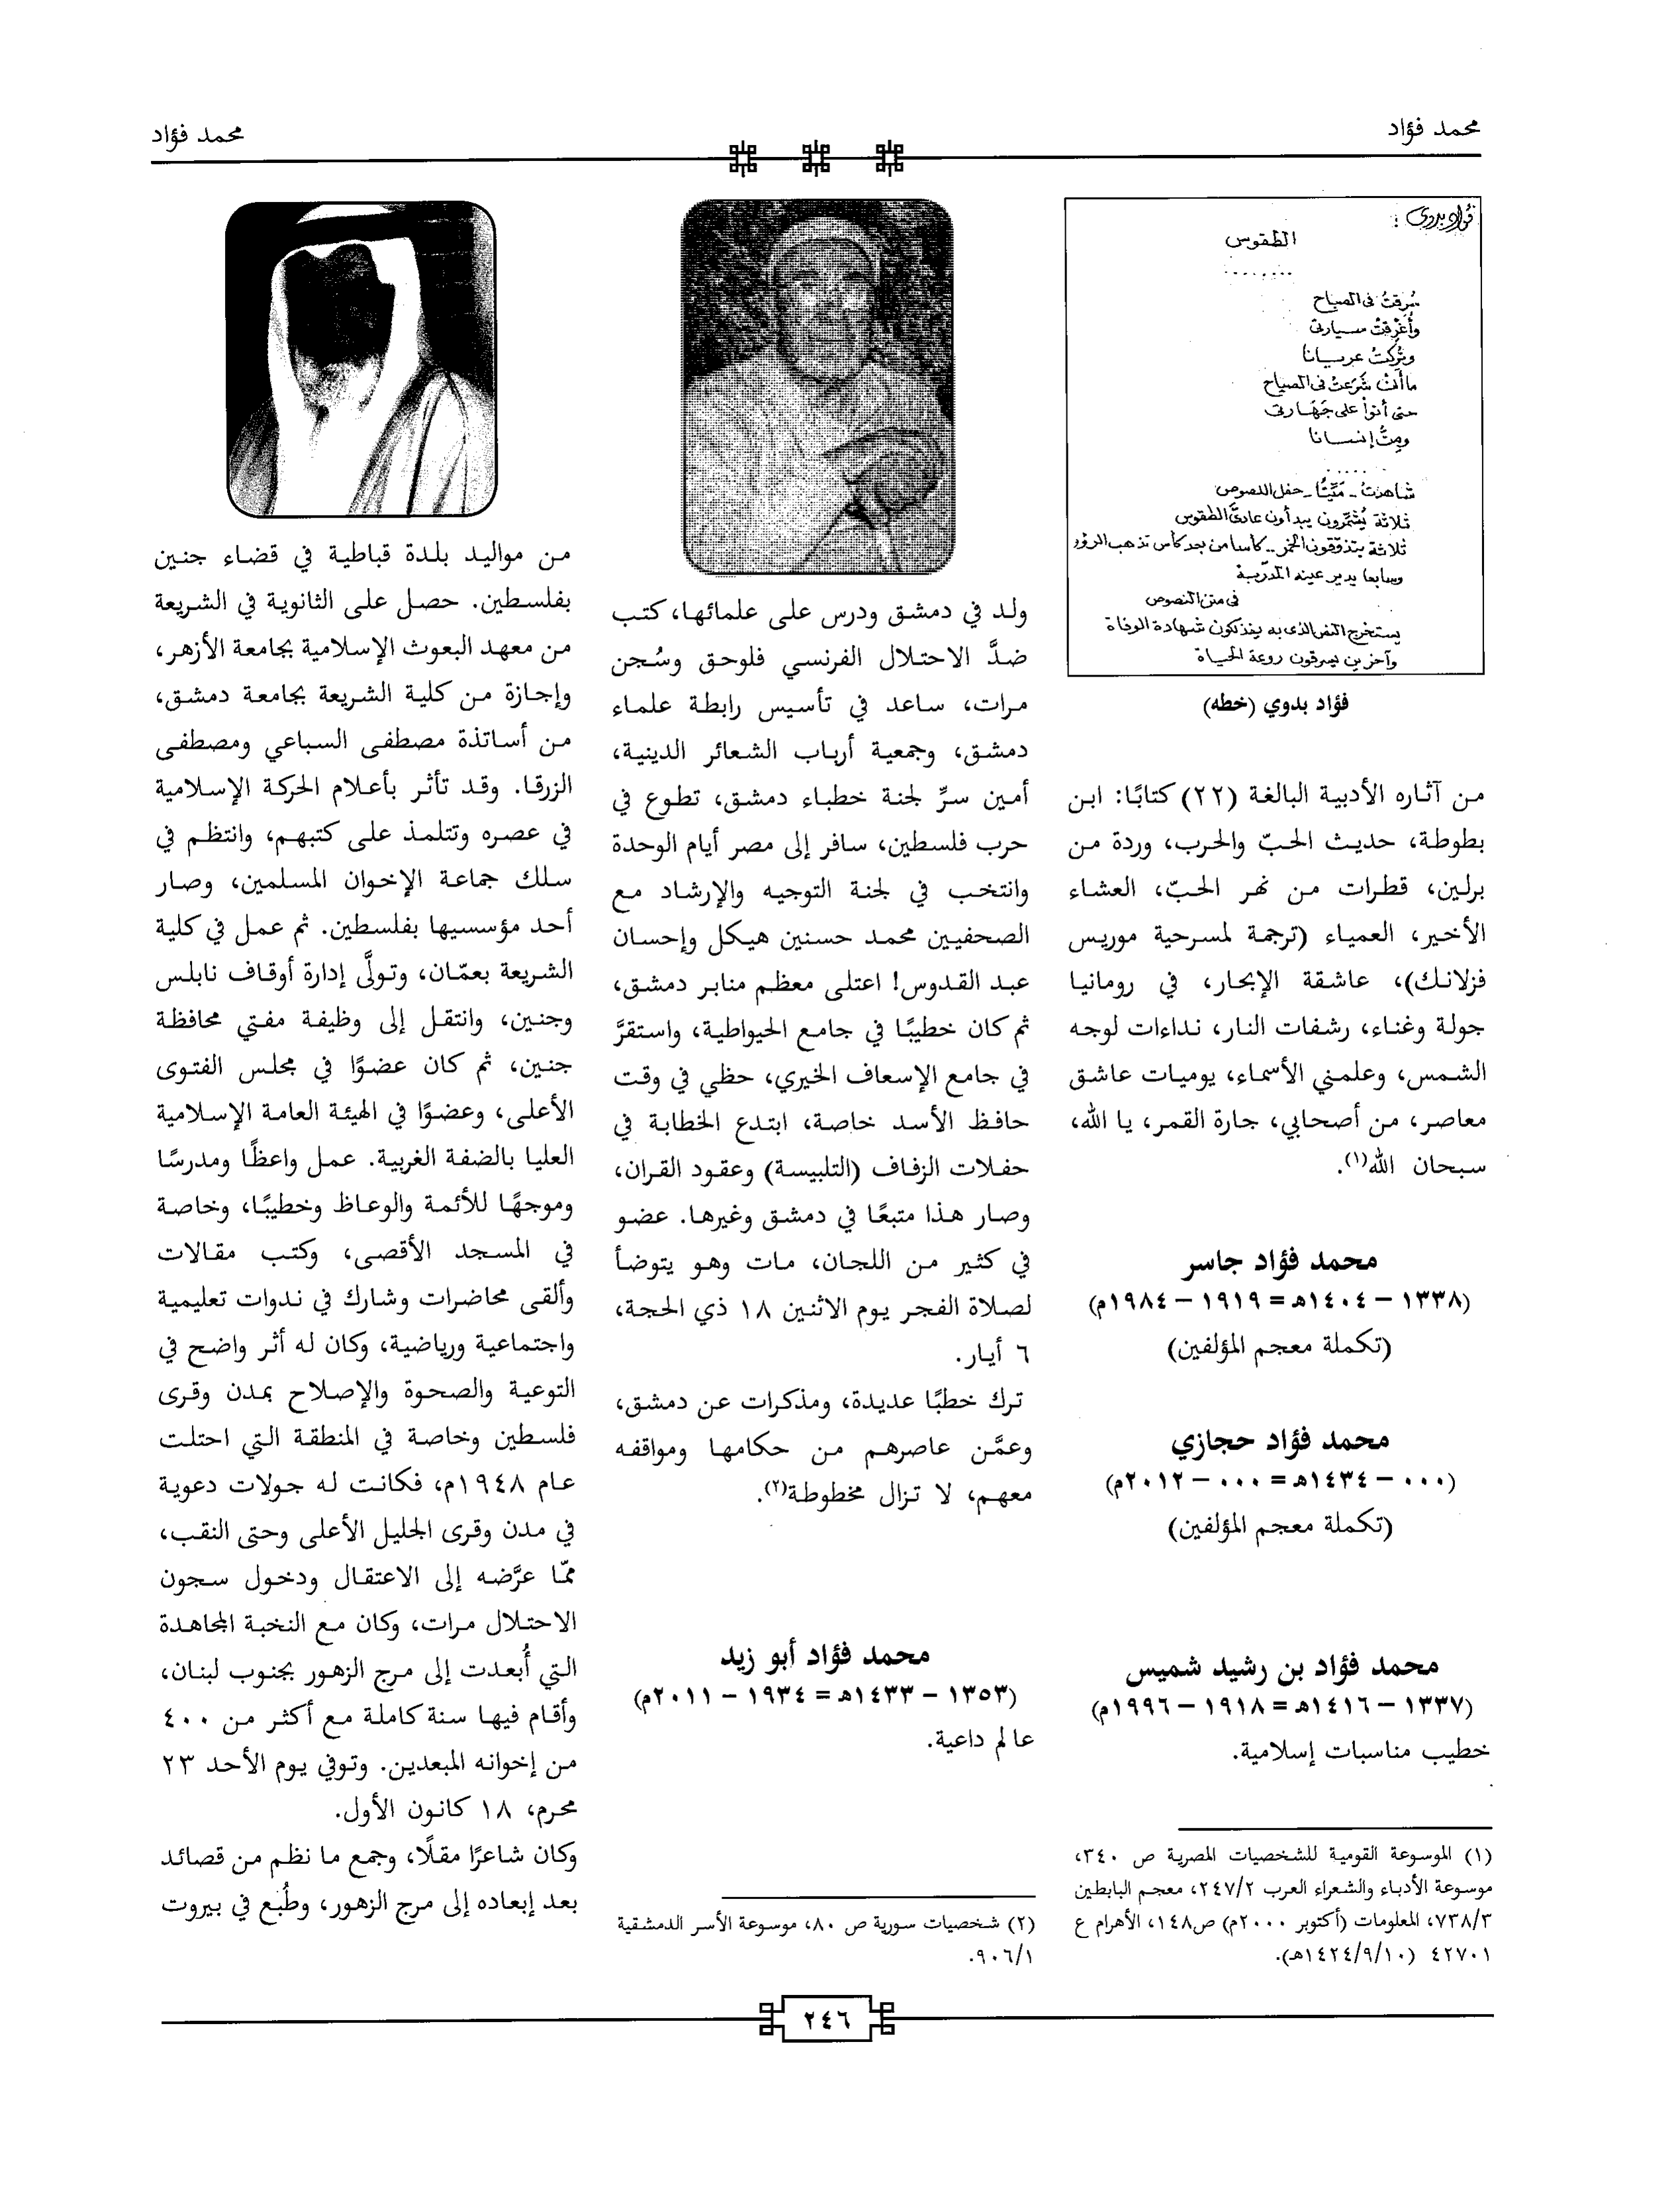 محمد فؤاد
محمد فؤاد
فؤاد بدوي :
الطقوس
سُرقتُ في الصباح
وأُغرقتْ سيارتي
وتُركتُ عريانا
ما أنْ شَرَعتُ في الصياح
حتى أتوْا على جَهَارتي
ومِتُّ إنسانا
شاهدتُ - مَيِّتًا - حفل اللصوص
ثلاثة يُشمّرون يبدأون عاديَّ الطقوس
ثلاثة يتذوّقون الخمر .. كأسا من بعد كأس تذهب الرؤوس
وسابعا يدير عينه المدرّبة
في متن النصوص
يستخرج النص الذي به ينذكون شهادة الوفاة
وآخرين يسرقون روعة الحياة
فؤاد بدوي (خطه)
من آثاره الأدبية البالغة (٢٢) كتابًا: ابن
بطوطة، حديث الحبّ والحرب، وردة من
برلين، قطرات من نهر الحبّ، العشاء
الأخير، العمياء (ترجمة لمسرحية موريس
فزلانك)، عاشقة الإبحار، في رومانيا
جولة وغناء، رشفات النار، نداءات لوجه
الشمس، وعلمني الأسماء، يوميات عاشق
معاصر، من أصحابي، جارة القمر، يا الله،
سبحان الله(١).
محمد فؤاد جاسر
(١٣٣٨ – ١٤٠٤هـ = ١٩١٩ – ١٩٨٤م)
(تكملة معجم المؤلفين)
محمد فؤاد حجازي
(٠٠٠ – ١٤٣٤هـ = ٠٠٠ – ٢٠١٢م)
(تكملة معجم المؤلفين)
محمد فؤاد بن رشيد شميس
(١٣٣٧ – ١٤١٦هـ = ١٩١٨ – ١٩٩٦م)
خطيب مناسبات إسلامية.
(١) الموسوعة القومية للشخصيات المصرية ص ٣٤٠،
موسوعة الأدباء والشعراء العرب ٢٤٧/٢، معجم البابطين
٧٣٨/٣، المعلومات (أكتوبر ٢٠٠٠م) ص١٤٨، الأهرام ع
٤٢٧٠١ (١٤٢٤/٩/١٠هـ).
ولد في دمشق ودرس على علمائها، كتب
ضدَّ الاحتلال الفرنسي فلوحق وسُجن
مرات، ساعد في تأسيس رابطة علماء
دمشق، وجمعية أرباب الشعائر الدينية،
أمين سرِّ لجنة خطباء دمشق، تطوع في
حرب فلسطين، سافر إلى مصر أيام الوحدة
وانتخب في لجنة التوجيه والإرشاد مع
الصحفيين محمد حسنين هيكل وإحسان
عبد القدوس! اعتلى معظم منابر دمشق،
ثم كان خطيبًا في جامع الحيواطية، واستقرَّ
في جامع الإسعاف الخيري، حظي في وقت
حافظ الأسد خاصة، ابتدع الخطابة في
حفلات الزفاف (التلبيسة) وعقود القران،
وصار هذا متبعًا في دمشق وغيرها. عضو
في كثير من اللجان، مات وهو يتوضأ
لصلاة الفجر يوم الاثنين ١٨ ذي الحجة،
٦ أيار.
ترك خطبًا عديدة، ومذكرات عن دمشق،
وعمَّن عاصرهم من حكامها ومواقفه
معهم، لا تزال مخطوطة(٢).
محمد فؤاد أبو زيد
(١٣٥٣ – ١٤٣٣هـ = ١٩٣٤ – ٢٠١١م)
عالم داعية.
(٢) شخصيات سورية ص ٨٠، موسوعة الأسر الدمشقية
٩٠٦/١.
من مواليد بلدة قباطية في قضاء جنين
بفلسطين. حصل على الثانوية في الشريعة
من معهد البعوث الإسلامية بجامعة الأزهر،
وإجازة من كلية الشريعة بجامعة دمشق،
من أساتذة مصطفى السباعي ومصطفى
الزرقا. وقد تأثر بأعلام الحركة الإسلامية
في عصره وتتلمذ على كتبهم، وانتظم في
سلك جماعة الإخوان المسلمين، وصار
أحد مؤسسيها بفلسطين. ثم عمل في كلية
الشريعة بعمّان، وتولَّى إدارة أوقاف نابلس
وجنين، وانتقل إلى وظيفة مفتي محافظة
جنين، ثم كان عضوًا في مجلس الفتوى
الأعلى، وعضوًا في الهيئة العامة الإسلامية
العليا بالضفة الغربية. عمل واعظًا ومدرسًا
وموجهًا للأئمة والوعاظ وخطيبًا، وخاصة
في المسجد الأقصى، وكتب مقالات
وألقى محاضرات وشارك في ندوات تعليمية
واجتماعية ورياضية، وكان له أثر واضح في
التوعية والصحوة والإصلاح بمدن وقرى
فلسطين وخاصة في المنطقة التي احتلت
عام ١٩٤٨م، فكانت له جولات دعوية
في مدن وقرى الجليل الأعلى وحتى النقب،
ممّا عرَّضه إلى الاعتقال ودخول سجون
الاحتلال مرات، وكان مع النخبة المجاهدة
التي أُبعدت إلى مرج الزهور بجنوب لبنان،
وأقام فيها سنة كاملة مع أكثر من ٤٠٠
من إخوانه المبعدين. وتوفي يوم الأحد ٢٣
محرم، ١٨ كانون الأول.
وكان شاعرًا مقلًا، وجمع ما نظم من قصائد
بعد إبعاده إلى مرج الزهور، وطُبع في بيروت
٢٤٦